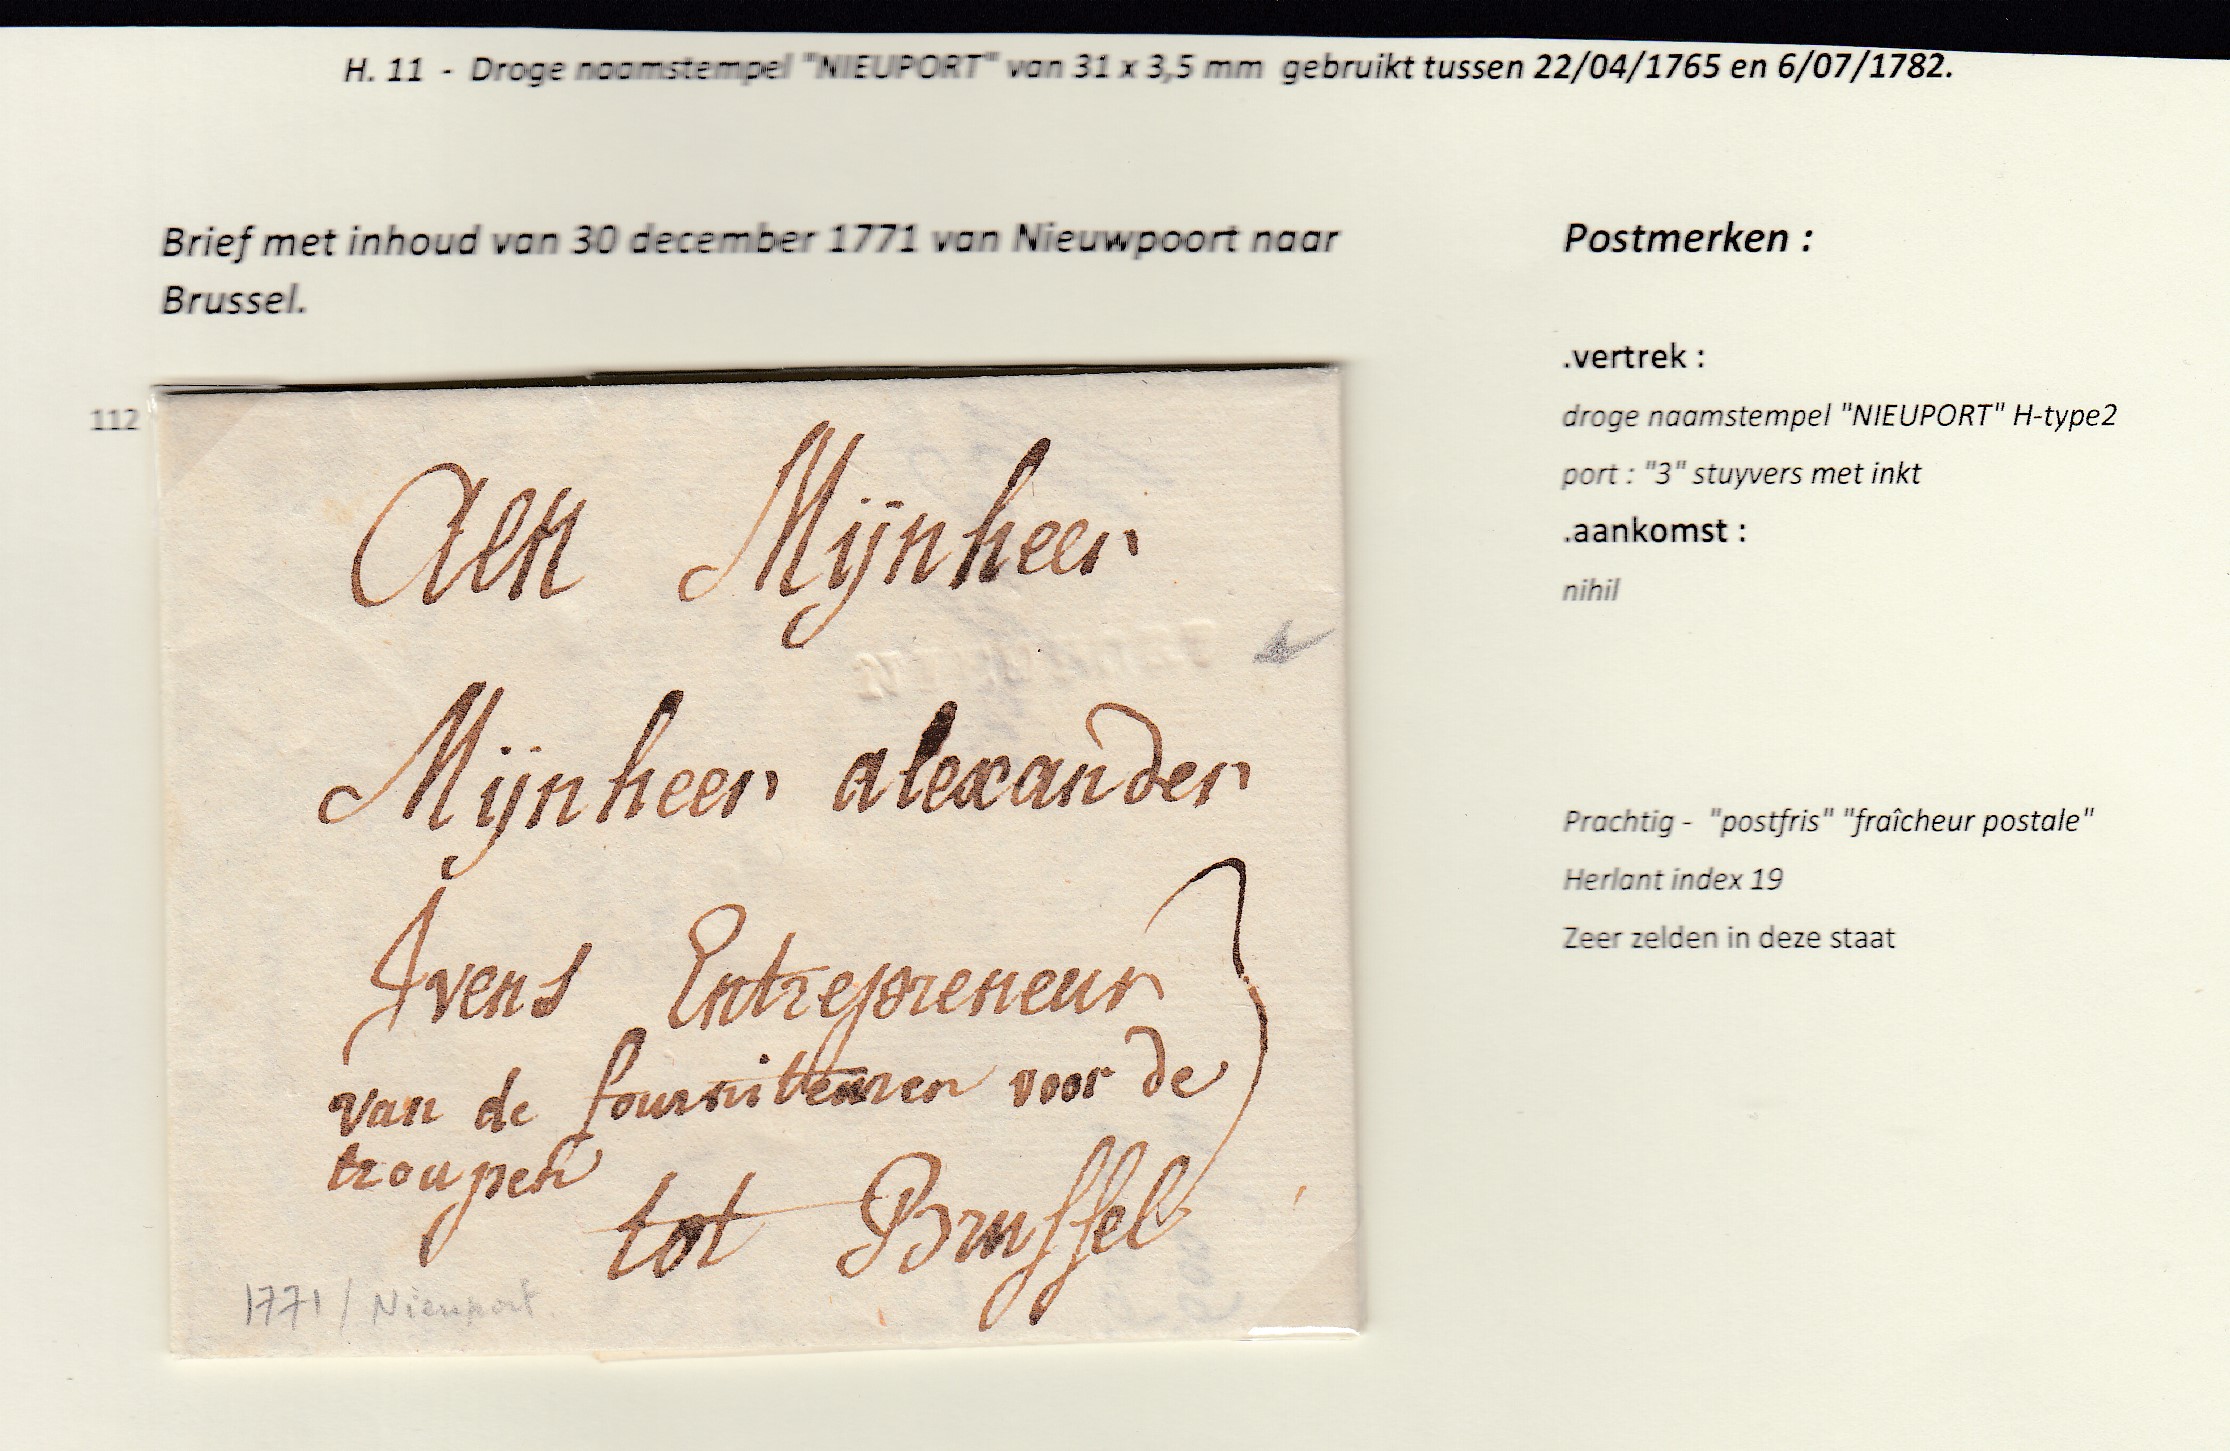 H. 11 - Droge naamstempel "NIEUPORT" van 31 x 3,5 mm gebruikt tussen 22/04/1765 en 6/07/1782.
Brief met inhoud van 30 december 1771 van Nieuwpoort naar
Brussel.
Postmerken :
.vertrek :
droge naamstempel "NIEUPORT" H-type2
port : "3" stuyvers met inkt
.aankomst :
nihil
Prachtig - "postfris" "fraîcheur postale"
Herlant index 19
Zeer zelden in deze staat
112
Aen Mijnheer
Mijnheer alexander
Ivens Entrepreneur
van de fournituren voor de
troupen
tot Brussel
3
1771 / Nieuport.